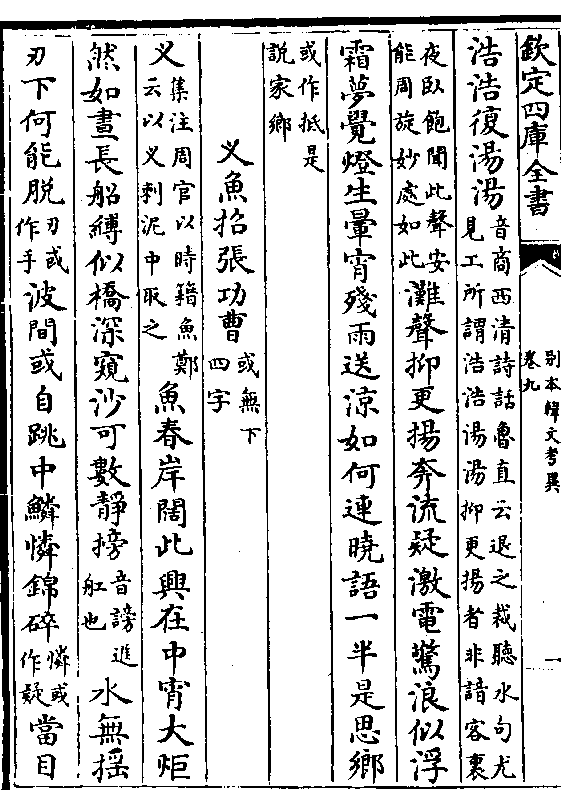 欽定四庫全書
別本韓文考異
卷九
一
浩浩復湯湯音商西清詩話魯直云退之裁聽水句尤見工所謂浩浩湯湯抑更揚者非諳客裏
夜臥飽聞此聲安能周旋妙處如此灘聲抑更揚奔流疑激電驚浪似浮
霜夢覺燈生暈宵殘雨送涼如何連曉語一半是思鄉
或作抵是說家鄉
叉魚招張功曹或無下四字
叉集注周官以時籍魚鄭云以叉刺泥中取之魚春岸闊此興在中宵大炬
然如晝長船縛似橋深窺沙可數靜搒音謗進舡也水無搖
刃下何能脫刃或作手波間或自跳中鱗憐錦碎憐或作疑當目